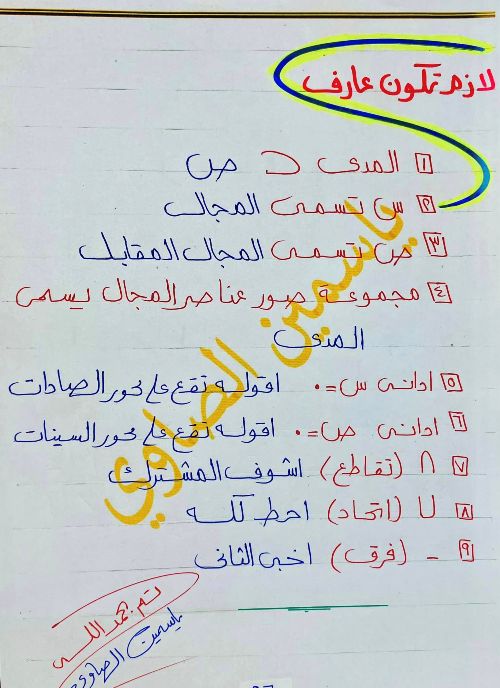 لازم تكون عارف
١ المدى ⊂ ص
٢ س تسمى المجال
٣ ص تسمى المجال المقابل
٤ مجموعة صور عناصر المجال يسمى
المدى
٥ ادانى س = ٠ اقوله تقع على محور الصادات
٦ ادانى ص = ٠ اقوله تقع على محور السينات
٧ ∩ (تقاطع) اشوف المشترك
٨ ∪ (اتحاد) احط كله
٩ - (فرق) اخبى الثانى
ياسمين الصاوي
تم بحمد الله
ياسمين الصاوى